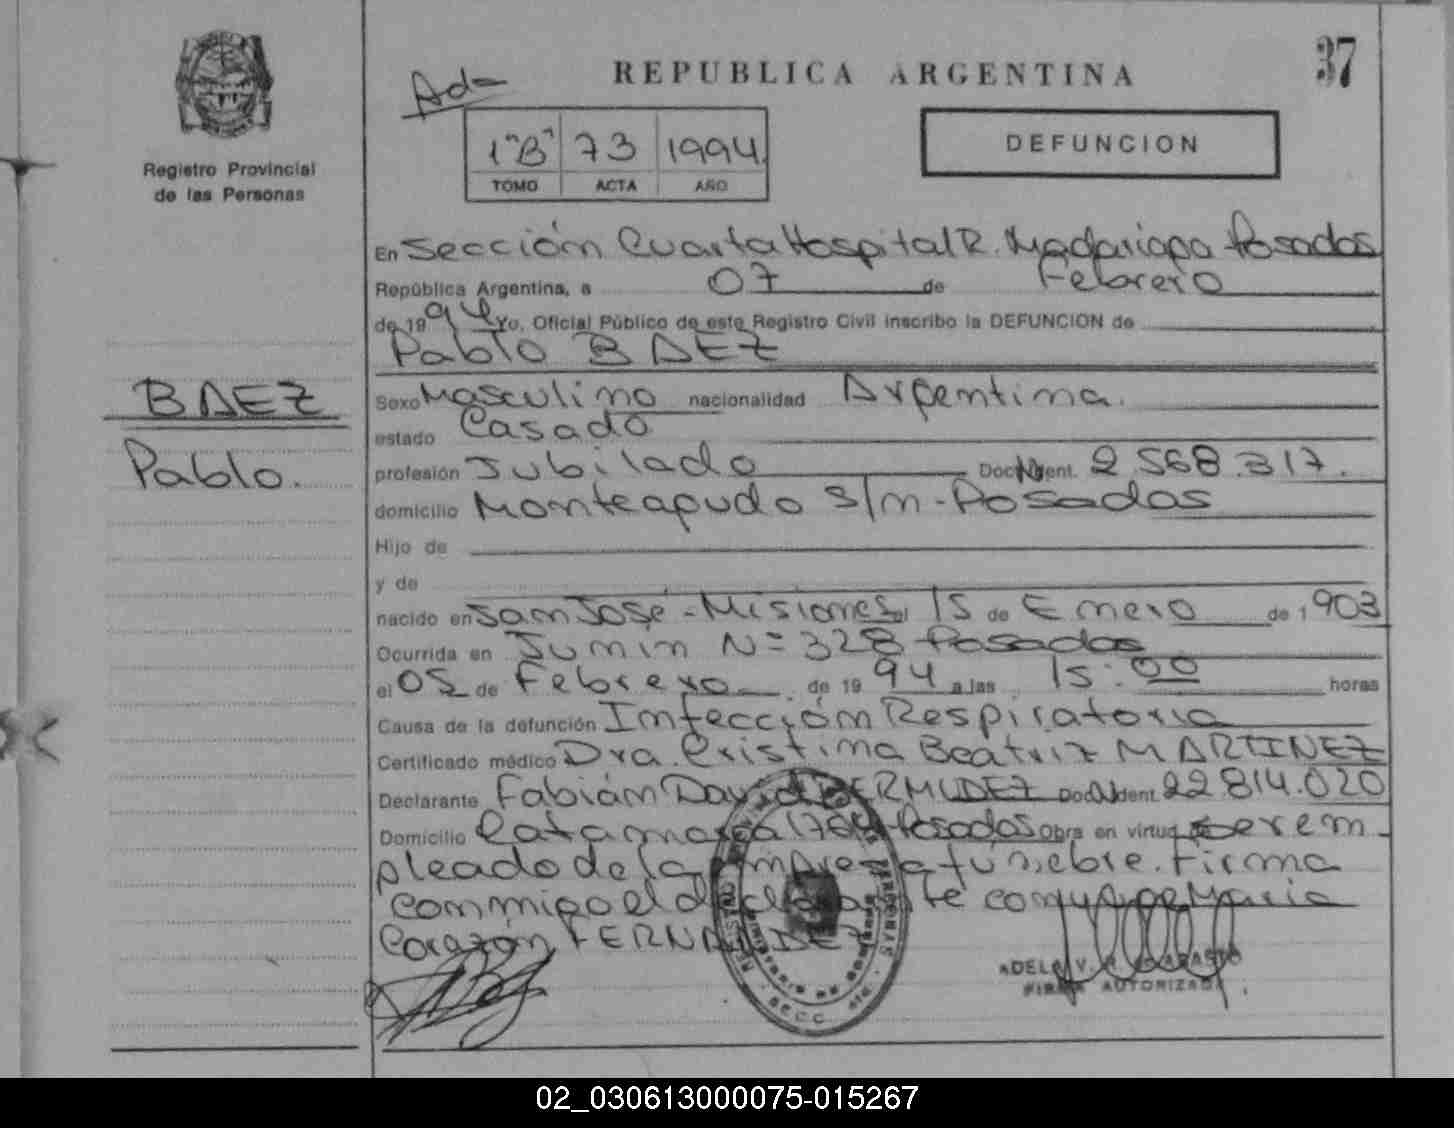 37
REPUBLICA ARGENTINA
Ad-
1"B" 73 1994.
TOMO ACTA AÑO
DEFUNCION
Registro Provincial
de las Personas
BAEZ
Pablo.
En Sección Cuarta Hospital R. Madariaga Posadas
República Argentina, a 07 de Febrero
de 1994 Yo, Oficial Público de este Registro Civil inscribo la DEFUNCION de
Pablo BAEZ
Sexo Masculino nacionalidad Argentina.
estado Casado
profesión Jubilado Doc. Ident. 2.568.317.
domicilio Monteagudo s/n - Posadas
Hijo de
y de
nacido en San José - Misiones el 15 de Enero de 1903
Ocurrida en Junin Nº 328 Posadas
el 05 de Febrero de 1994 a las 15:00 horas
Causa de la defunción Infección Respiratoria
Certificado médico Dra. Cristina Beatriz MARTINEZ
Declarante Fabián David BERMUDEZ Doc. Ident. 22.814.020
Domicilio Catamarca Posadas Obra en virtud ser em-
pleado de la empresa fúnebre. Firma
conmigo el declarante conyuge Maria
Corazón FERNANDEZ
FIRMA AUTORIZADA
02_030613000075-015267